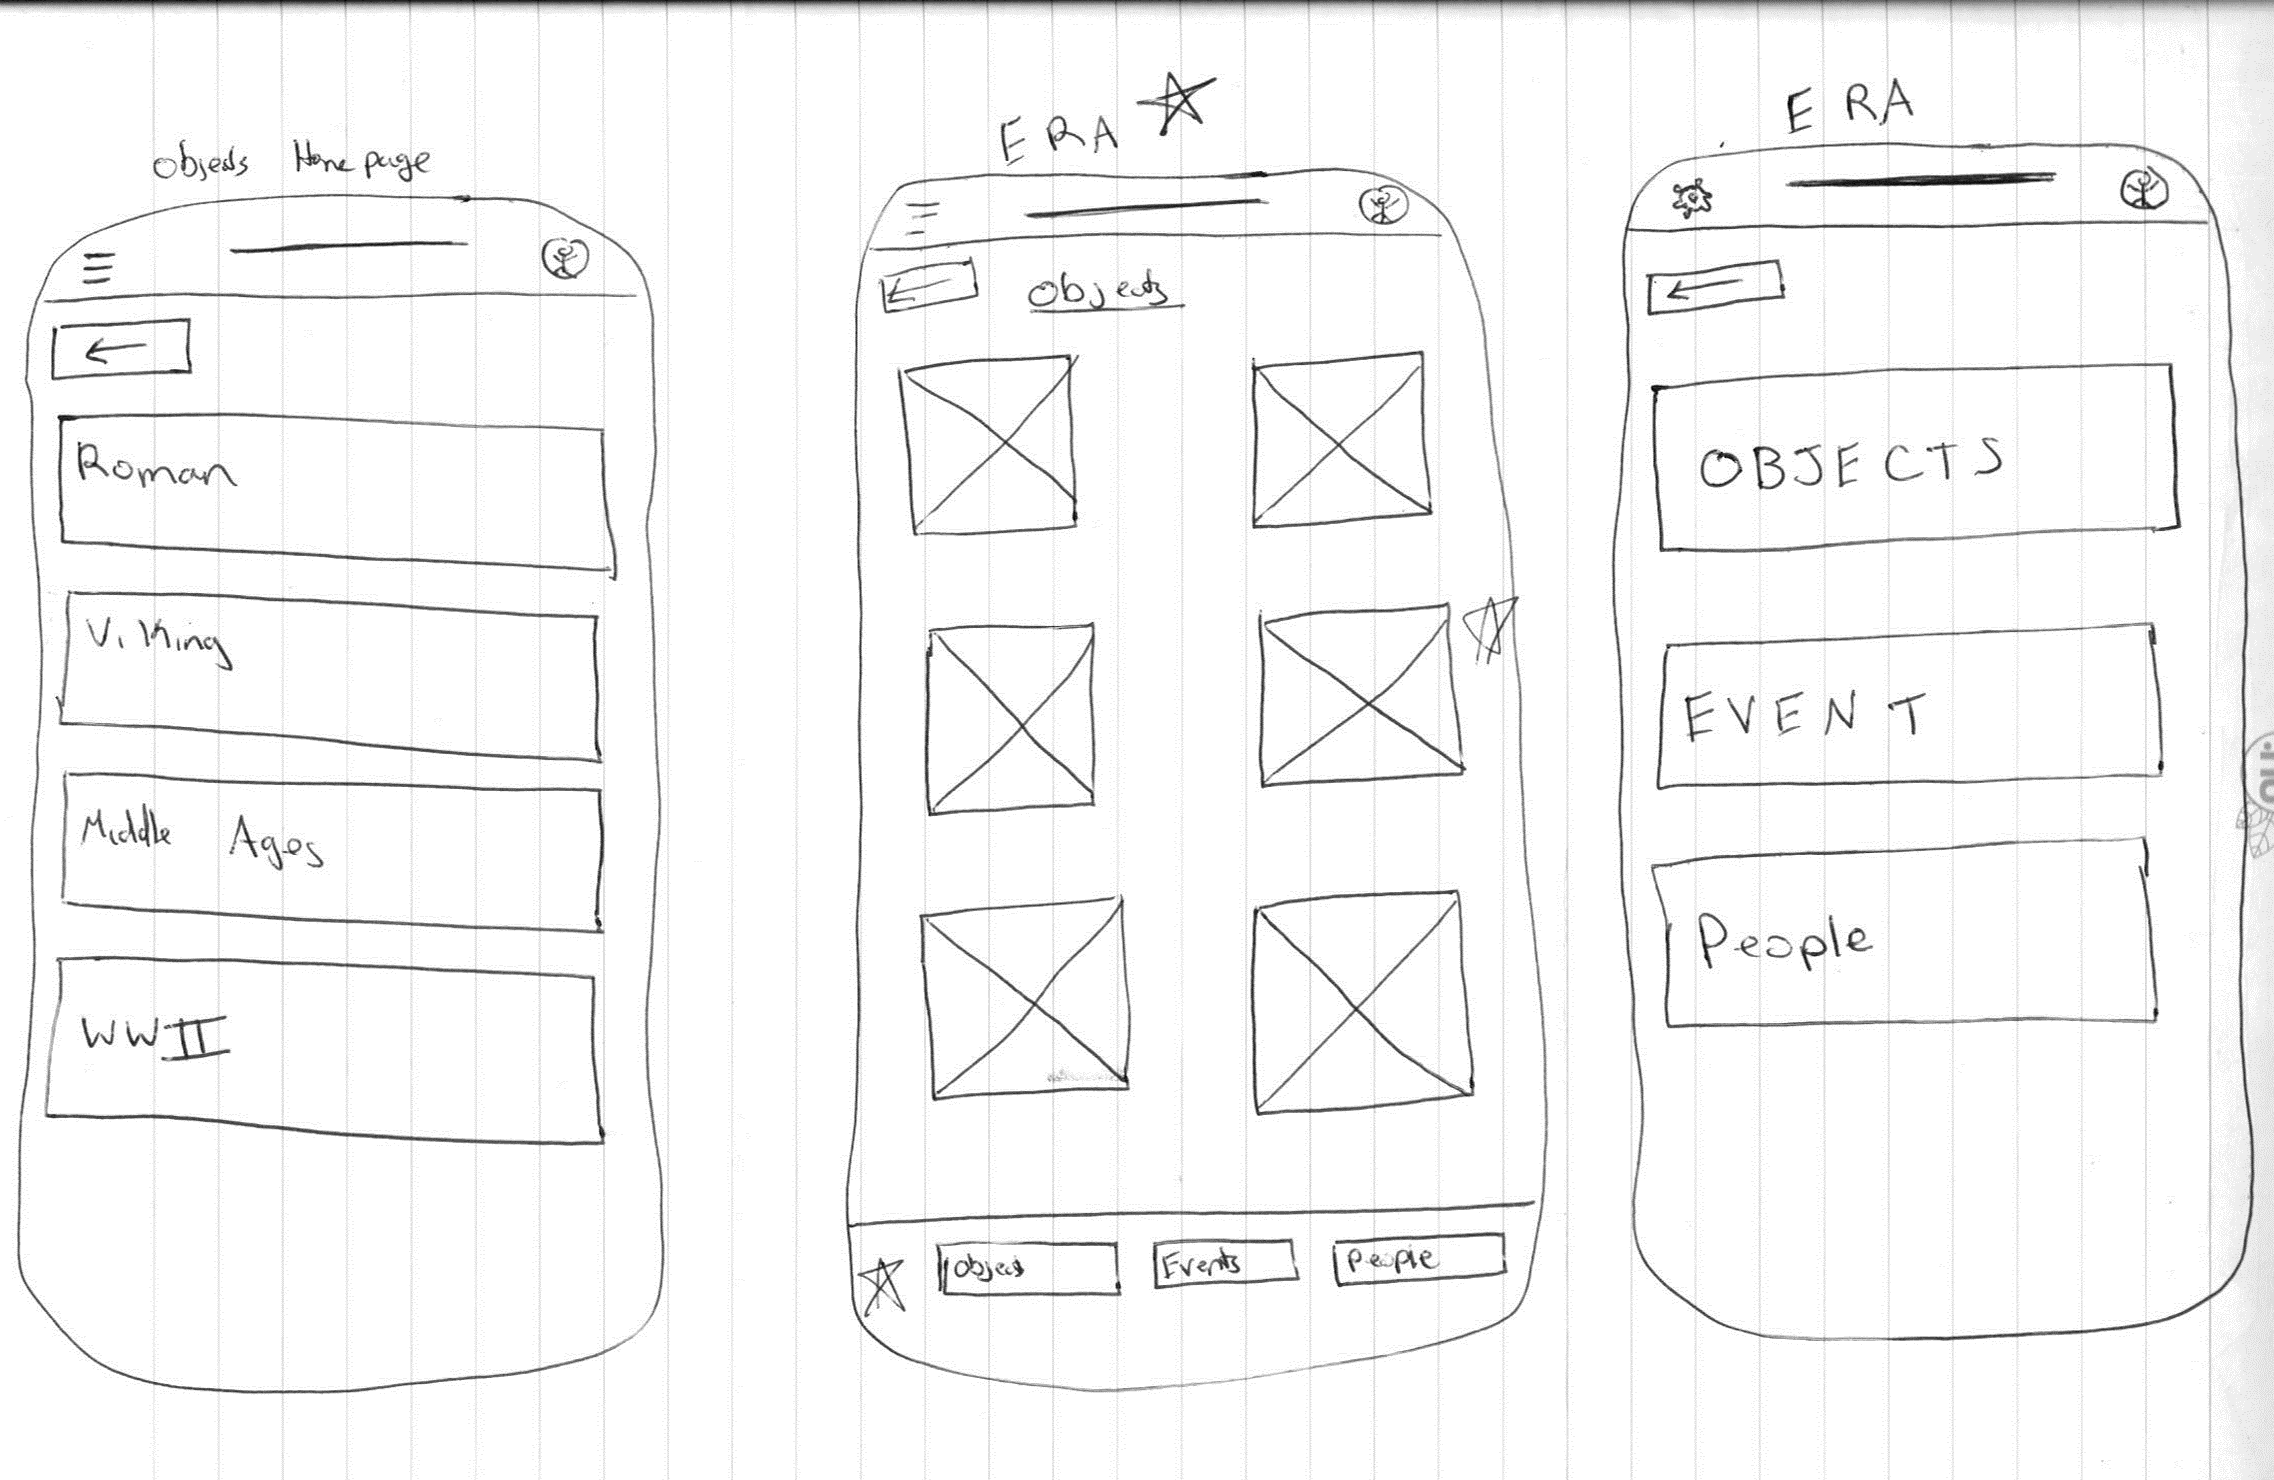 Objects Home page
Roman
Viking
Middle Ages
WWII
ERA
Objects
Object
Events
People
ERA
OBJECTS
EVENT
People